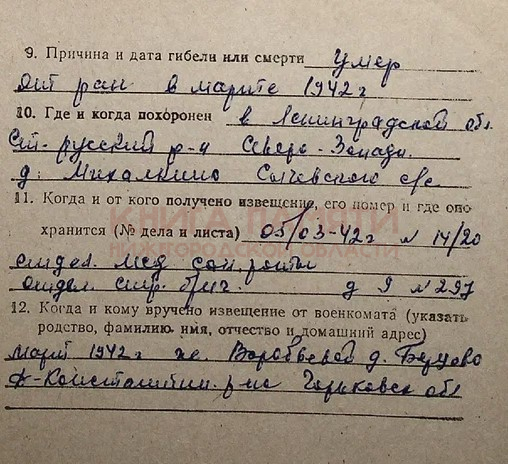 9. Причина и дата гибели или смерти умер
от ран в марте 1942 г
10. Где и когда похоронен в Ленинградской обл.
Ст-русский р-н Северо-Западн.
д. Михалкино Сычевского с/с
11. Когда и от кого получено извещение, его номер и где опо
хранится (№ дела и листа) 05/03-42 г N 14/20
КНИГА ПАМЯТИ
НИЖЕГОРОДСКОЙ ОБЛАСТИ
отдел. мед сан. роты
отдел. стр. бриг. д 9 N 297
12. Когда и кому вручено извещение от военкомата (указать
родство, фамилию, имя, отчество и домашний адрес)
март 1942 г же. Воробьевой д. Берсово
Д-Константин. р-на Горьковск обл